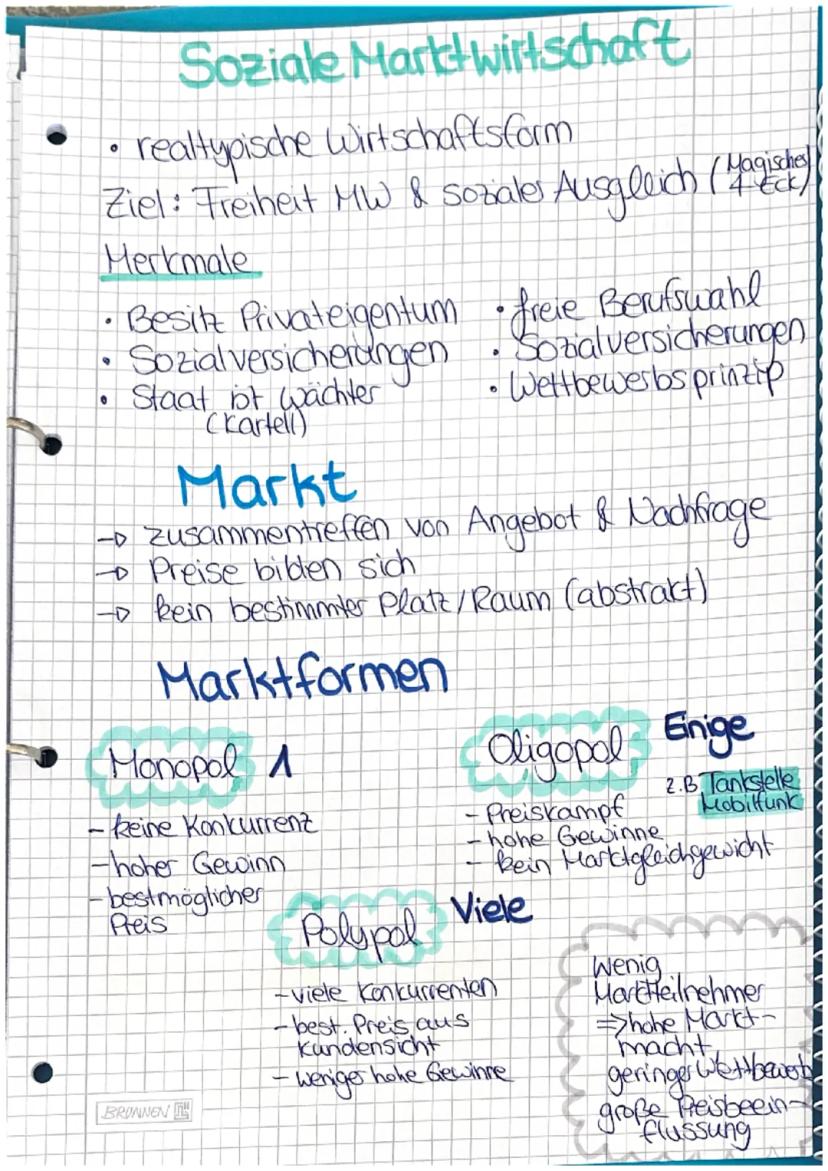 Soziale Marktwirtschaft
• realtypische Wirtschaftsform
Ziel: Freiheit MW & sozialer Ausgleich (Magisches 4-Eck)
Merkmale
• Besitz Privateigentum
• Sozialversicherungen
• Staat ist Wächter
(Kartell)
• freie Berufswahl
• Sozialversicherungen
• Wettbewerbsprinzip
Markt
→ zusammentreffen von Angebot & Nachfrage
→ Preise bilden sich
→ kein bestimmter Platz/Raum (abstrakt)
Marktformen
Monopol 1
- keine Konkurrenz
- hoher Gewinn
- bestmöglicher
Preis
Oligopol Einige
z.B. Tankstelle
Mobilfunk
- Preiskampf
- hohe Gewinne
- kein Marktgleichgewicht
Polypol Viele
- viele Konkurrenten
- best. Preis aus
Kundensicht
- weniger hohe Gewinne
Wenig
Marktteilnehmer
=> hohe Markt-
macht
geringer Wettbewerb
große Preisbeein-
flussung
BRUNNEN